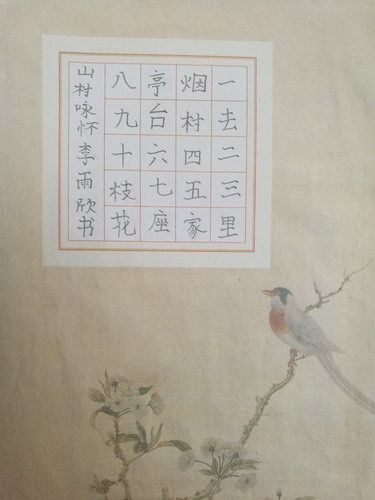 一去二三里
烟村四五家
亭台六七座
八九十枝花
山村咏怀李雨欣书